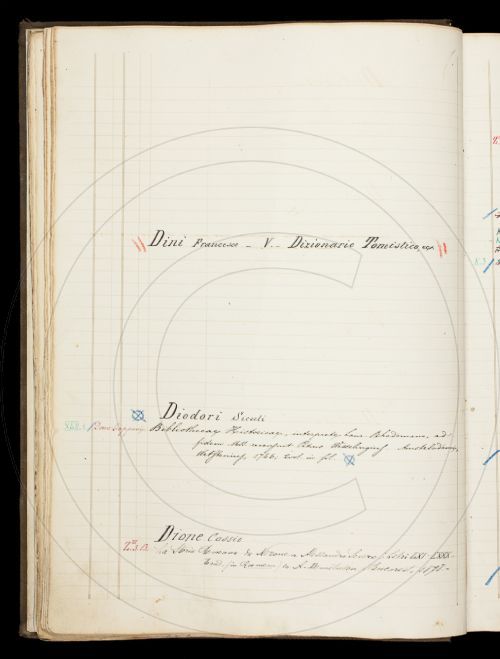 Dini Francesco - V. - Dizionario Tomistico, ecc.
Diodori Siculi
Bibliothecae Historicae, interprete Laur. Rhodomano, ad
fidem Mss. recensuit Petrus Wesselingius Amstelodami,
Wetstenius, 1746, 2 vol. in fol.
Dione Cassio
Storia Romana da Nerone a Alessandro Severo Libri LXI-LXXX
trad. in Romeno Bucarest, 1878